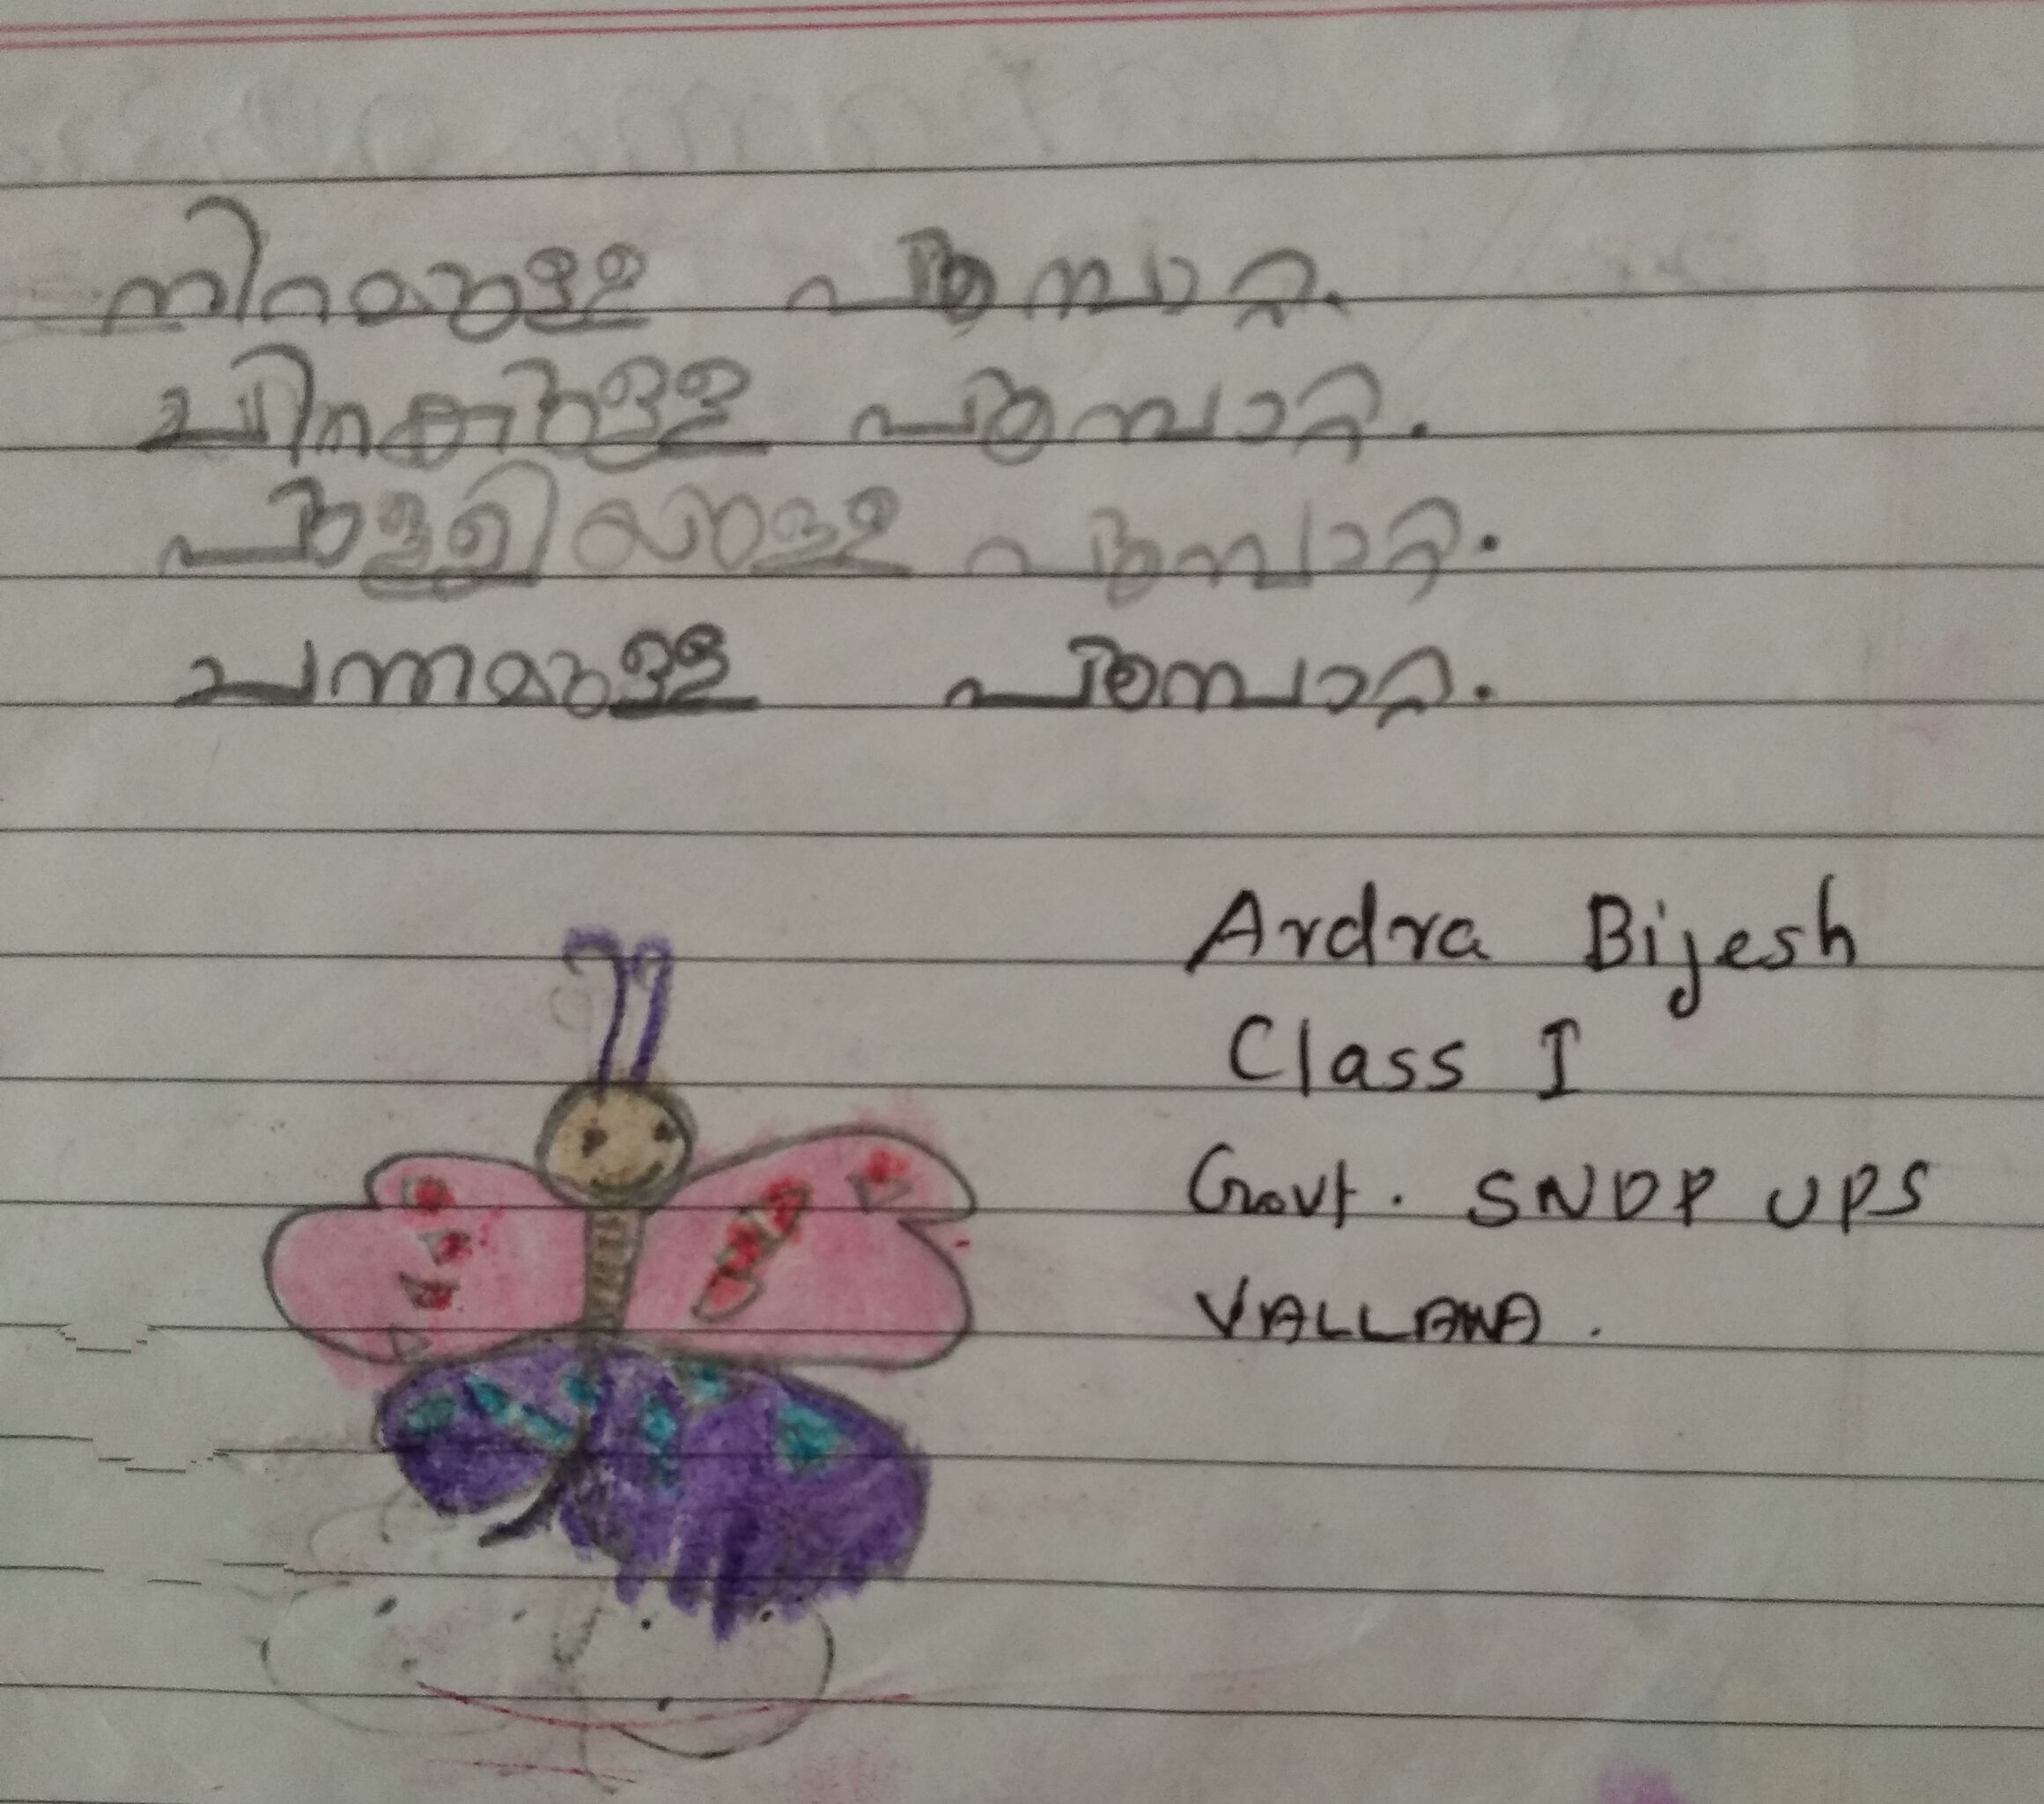 നിറമുള്ള പൂമ്പാറ്റ.
ചിറകുള്ള പൂമ്പാറ്റ.
പുള്ളിയുള്ള പൂമ്പാറ്റ.
ചന്തമുള്ള പൂമ്പാറ്റ.
Ardra Bijesh
Class I
Govt. SNDP UPS
VALLANA.